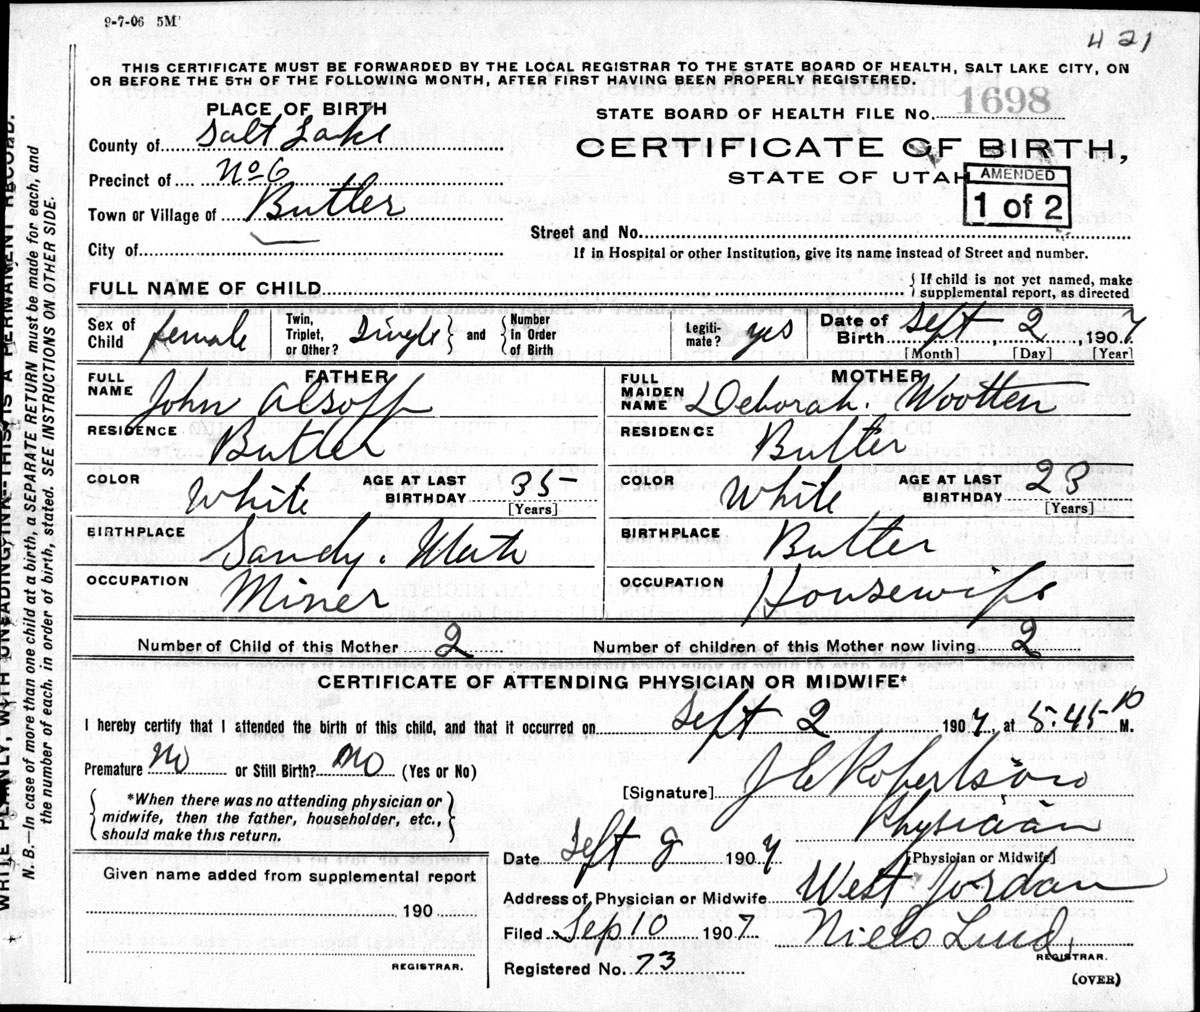 9-7-06 5M
421
THIS CERTIFICATE MUST BE FORWARDED BY THE LOCAL REGISTRAR TO THE STATE BOARD OF HEALTH, SALT LAKE CITY, ON
OR BEFORE THE 5TH OF THE FOLLOWING MONTH, AFTER FIRST HAVING BEEN PROPERLY REGISTERED.
PLACE OF BIRTH
County of Salt Lake
Precinct of No 6
Town or Village of Butler
City of
STATE BOARD OF HEALTH FILE No. 1698
CERTIFICATE OF BIRTH,
STATE OF UTAH
AMENDED
1 of 2
Street and No.
If in Hospital or other Institution, give its name instead of Street and number.
FULL NAME OF CHILD { If child is not yet named, make
supplemental report, as directed
Sex of Child female Twin, Triplet, or Other? Single and Number in Order of Birth Legiti-mate? yes Date of Birth Sept 2, 1907
[Month] [Day] [Year]
FATHER
FULL NAME John Alsoff
RESIDENCE Butler
COLOR White AGE AT LAST BIRTHDAY 35
[Years]
BIRTHPLACE Sandy. Utah
OCCUPATION Miner
MOTHER
FULL MAIDEN NAME Deborah. Wootten
RESIDENCE Butler
COLOR White AGE AT LAST BIRTHDAY 23
[Years]
BIRTHPLACE Butler
OCCUPATION Housewife
Number of Child of this Mother 2 Number of children of this Mother now living 2
CERTIFICATE OF ATTENDING PHYSICIAN OR MIDWIFE*
I hereby certify that I attended the birth of this child, and that it occurred on Sept 2 1907, at 5:45 M.
Premature No or Still Birth? No (Yes or No)
*When there was no attending physician or
midwife, then the father, householder, etc.,
should make this return.
[Signature] J C Robertson
Physician
[Physician or Midwife]
Date Sept 1907
Address of Physician or Midwife West Jordan
Filed Sep 10 1907 Niels Lind
REGISTRAR.
Registered No. 73
(OVER)
Given name added from supplemental report
190
REGISTRAR.
WRITE PLAINLY, WITH UNFADING INK--THIS IS A PERMANENT RECORD.
N. B.—In case of more than one child at a birth, a SEPARATE RETURN must be made for each, and
the number of each, in order of birth, stated. SEE INSTRUCTIONS ON OTHER SIDE.